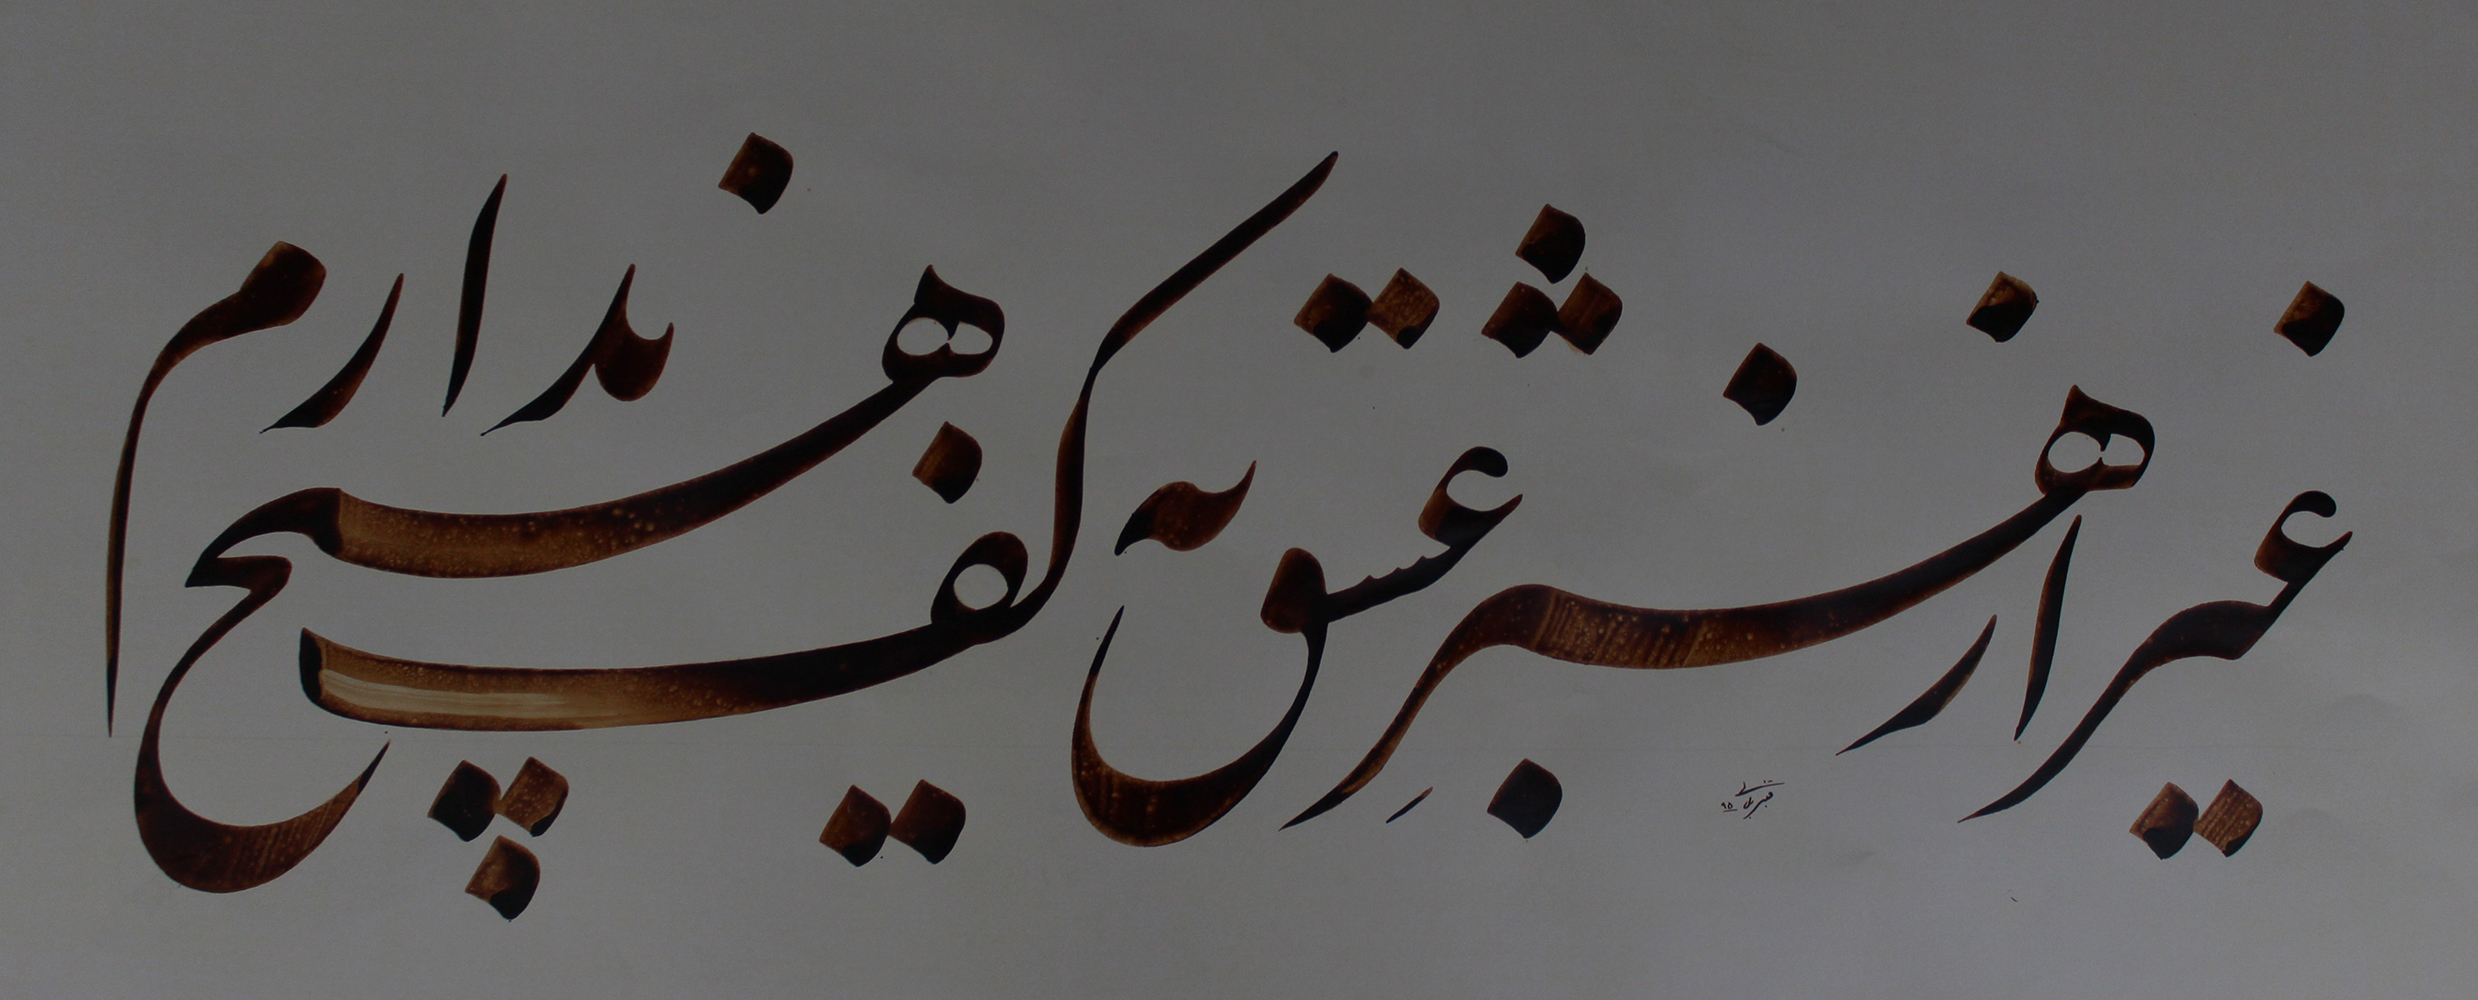 غیر از هنرِ عشق به کف هیچ ندارم
۹۵